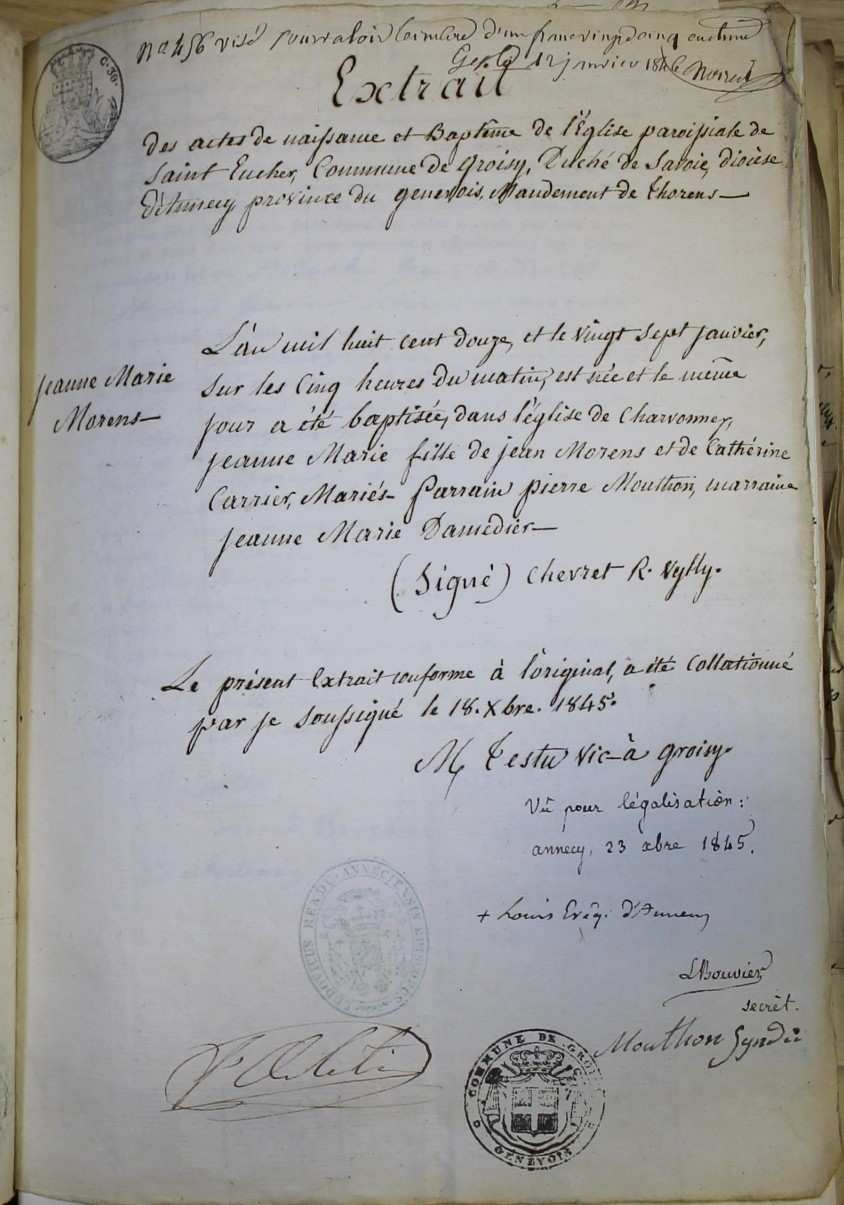 C. 30.
No 456 visé pour valoir timbre d'un franc vingt cinq centimes
Gex le 12 janvier 1846
Extrait
des actes de naissance et Baptême de l'Église paroissiale de
Saint Eucher, Commune de Groisy, Duché de Savoie, diocèse
d'Annecy, province du genevois, Mandement de Thorens—
Jeanne Marie
Morens—
L'an mil huit cent douze, et le vingt sept janvier,
sur les cinq heures du matin, est née et le même
jour a été baptisée, dans l'église de Charvonney,
jeanne Marie fille de jean Morens et de Cathérine
Carrier, Mariés- Parrain pierre Mouthon, marraine
jeanne Marie Damédier—
(Signé) Chevret R. Vylly.
Le présent Extrait conforme à l'original, a été Collationné
par je soussigné le 18. Xbre. 1845.
Testu Vic- à groisy.
Vû pour légalisation:
annecy, 23 xbre 1845.
LUDOVICUS RENDU ANNECIENSIS EPISCOPUS
+ Louis Evêq. d'Annecy
LBouvier
secrèt.
Mouthon Syndic
COMMUNE DE GROISY
GENEVOIS